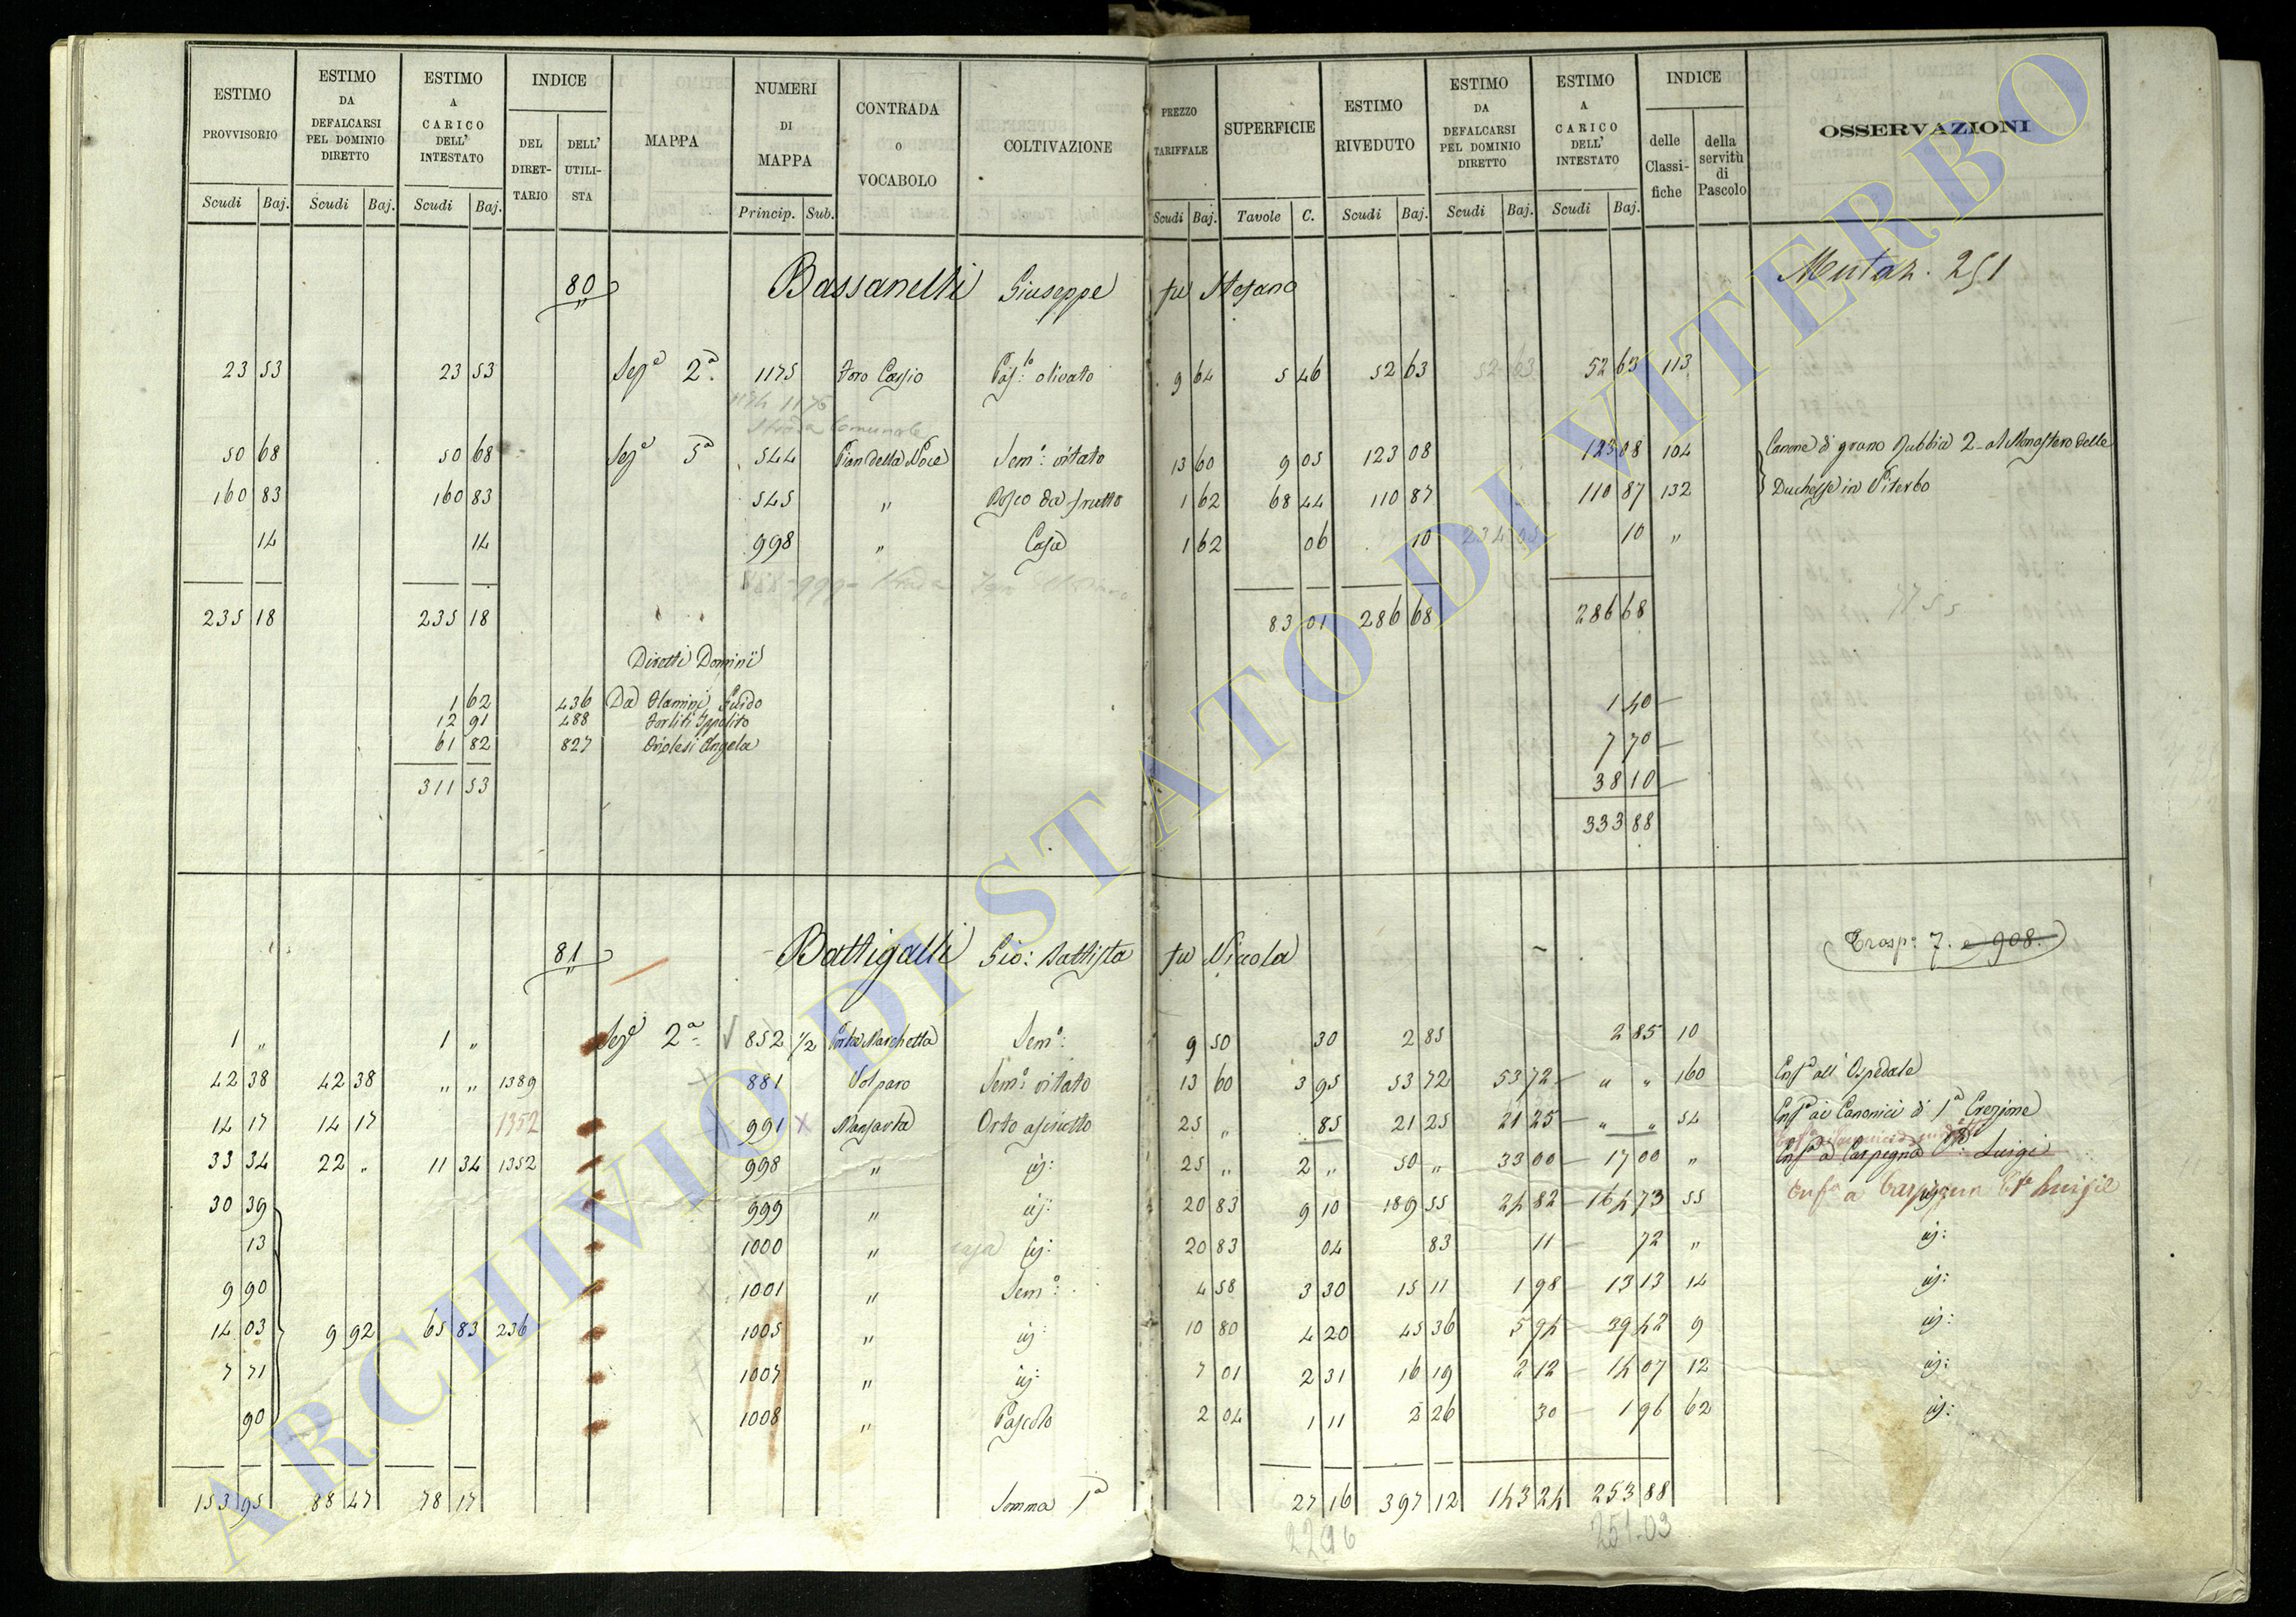 ESTIMO PROVVISORIO | ESTIMO DA DEFALCARSI PEL DOMINIO DIRETTO | ESTIMO A CARICO DELL' INTESTATO | INDICE | MAPPA | NUMERI DI MAPPA | CONTRADA O VOCABOLO | COLTIVAZIONE | PREZZO TARIFFALE | SUPERFICIE | ESTIMO RIVEDUTO | ESTIMO DA DEFALCARSI PEL DOMINIO DIRETTO | ESTIMO A CARICO DELL' INTESTATO | INDICE | OSSERVAZIONI
DEL DIRET-TARIO | DELL' UTILI-STA | delle Classi-fiche | della servitù di Pascolo
Scudi | Baj. | Scudi | Baj. | Scudi | Baj. | Princip. | Sub. | Scudi | Baj. | Tavole | C. | Scudi | Baj. | Scudi | Baj. | Scudi | Baj.
80 Bassanelli Giuseppe fu Stefano Mutaz. 251
23 53 | 23 53 | Sezª 2ª | 1175 | Foro Cassio | Pasº: olivato | 9 64 | 5 46 | 52 63 | 52 63 | 52 63 | 113
1174 1175
Strada Comunale
50 68 | 50 68 | Sezª 5ª | 544 | Pian della Noce | Semº: vitato | 13 60 | 9 05 | 123 08 | 123 08 | 104 | Canone di grano Rubbia 2 al Monastero delle
160 83 | 160 83 | 545 | " | Bosco da frutto | 1 62 | 68 44 | 110 87 | 110 87 | 132 | Duchesse in Viterbo
14 | 14 | 998 | " | Casa | 1 62 | 06 | 10 | 234 05 | 10 | "
999 Strada
235 18 | 235 18 | 83 01 | 286 68 | 286 68
Diretti Dominii
1 62 | 436 | Da Flamini Guido | 1 40
12 91 | 488 | Forliti Ippolito | 7 70
61 82 | 827 | Oriolesi Angela | 38 10
311 53 | 333 88
81 Battigalli Gio: Battista fu Nicola Trasp: 7. e 908.
1 " | 1 " | Sezª 2ª | 852 1/2 | Porta Marchetta | Semº: | 9 50 | 30 | 2 85 | 2 85 | 10
42 38 | 42 38 | " " | 1389 | 881 | Volparo | Semº: vitato | 13 60 | 3 95 | 53 72 | 53 72 | " " | 160 | Enfª all' Ospedale
14 17 | 14 17 | 1352 | 991 | Mansarta | Orto asciutto | 25 " | 85 | 21 25 | 21 25 | " " | 54 | Enfª ai Canonici di 1ª Erezione
33 34 | 22 " | 11 34 | 1352 | 998 | " | id: | 25 " | 2 " | 50 " | 33 00 | 17 00 | " | Enfª a Carpegna Luigi
30 39 | 999 | " | id: | 20 83 | 9 10 | 189 55 | 24 82 | 164 73 | 55 | Enfª a Carpegna Luigi
13 | 1000 | " | casa id: | 20 83 | 04 | 83 | 11 | 72 | " | id:
9 90 | 1001 | " | Semº: | 4 58 | 3 30 | 15 11 | 1 98 | 13 13 | 14 | id:
14 03 | 9 92 | 65 83 | 236 | 1005 | " | id: | 10 80 | 4 20 | 45 36 | 5 94 | 39 42 | 9 | id:
7 71 | 1007 | " | id: | 7 01 | 2 31 | 16 19 | 2 12 | 14 07 | 12 | id:
90 | 1008 | " | Pascolo | 2 04 | 1 11 | 2 26 | 30 | 1 96 | 62 | id:
153 95 | 88 47 | 78 17 | Somma 1ª | 27 16 | 397 12 | 143 24 | 253 88
2296 251.03
ARCHIVIO DI STATO DI VITERBO